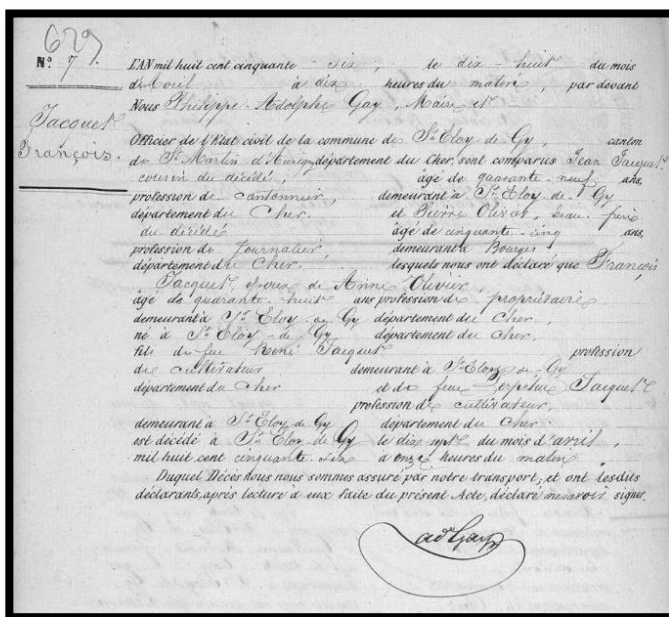 629
N.º 7.
Jacquet
François.
L'AN mil huit cent cinquante-six, le dix-huit du mois
d'avril à dix heures du matin, par devant
Nous Philippe Adolphe Gay, Maire et
Officier de l'Etat civil de la commune de St Eloy de Gy, canton
de St Martin d'Auxigny département du Cher, sont comparus Jean Jacquet
cousin du décédé, âgé de quarante-neuf ans,
profession de cantonnier, demeurant à St Eloy-de-Gy
département du Cher. et Pierre Olivier, beau-frère
du décédé âgé de cinquante-cinq ans,
profession de Journalier, demeurant à Bourges
département du Cher. lesquels nous ont déclaré que François
Jacquet, époux de Anne Olivier,
âgé de quarante-huit ans profession de propriétaire
demeurant à St Eloy-de-Gy département du Cher,
né à St Eloy-de-Gy département du Cher,
fils de feu René Jacquet profession
de cultivateur demeurant à St Eloy-de-Gy
département du Cher et de feue Perpétue Jacquet
profession de cultivateur,
demeurant à St Eloy-de-Gy département du Cher.
est décédé à St Eloy-de-Gy le dix sept du mois d'avril,
mil huit cent cinquante six à onze heures du matin
Duquel Décès nous nous sommes assuré par notre transport; et ont lesdits
déclarants, après lecture à eux faite du présent Acte, déclaré ne savoir signer.
ad Gay